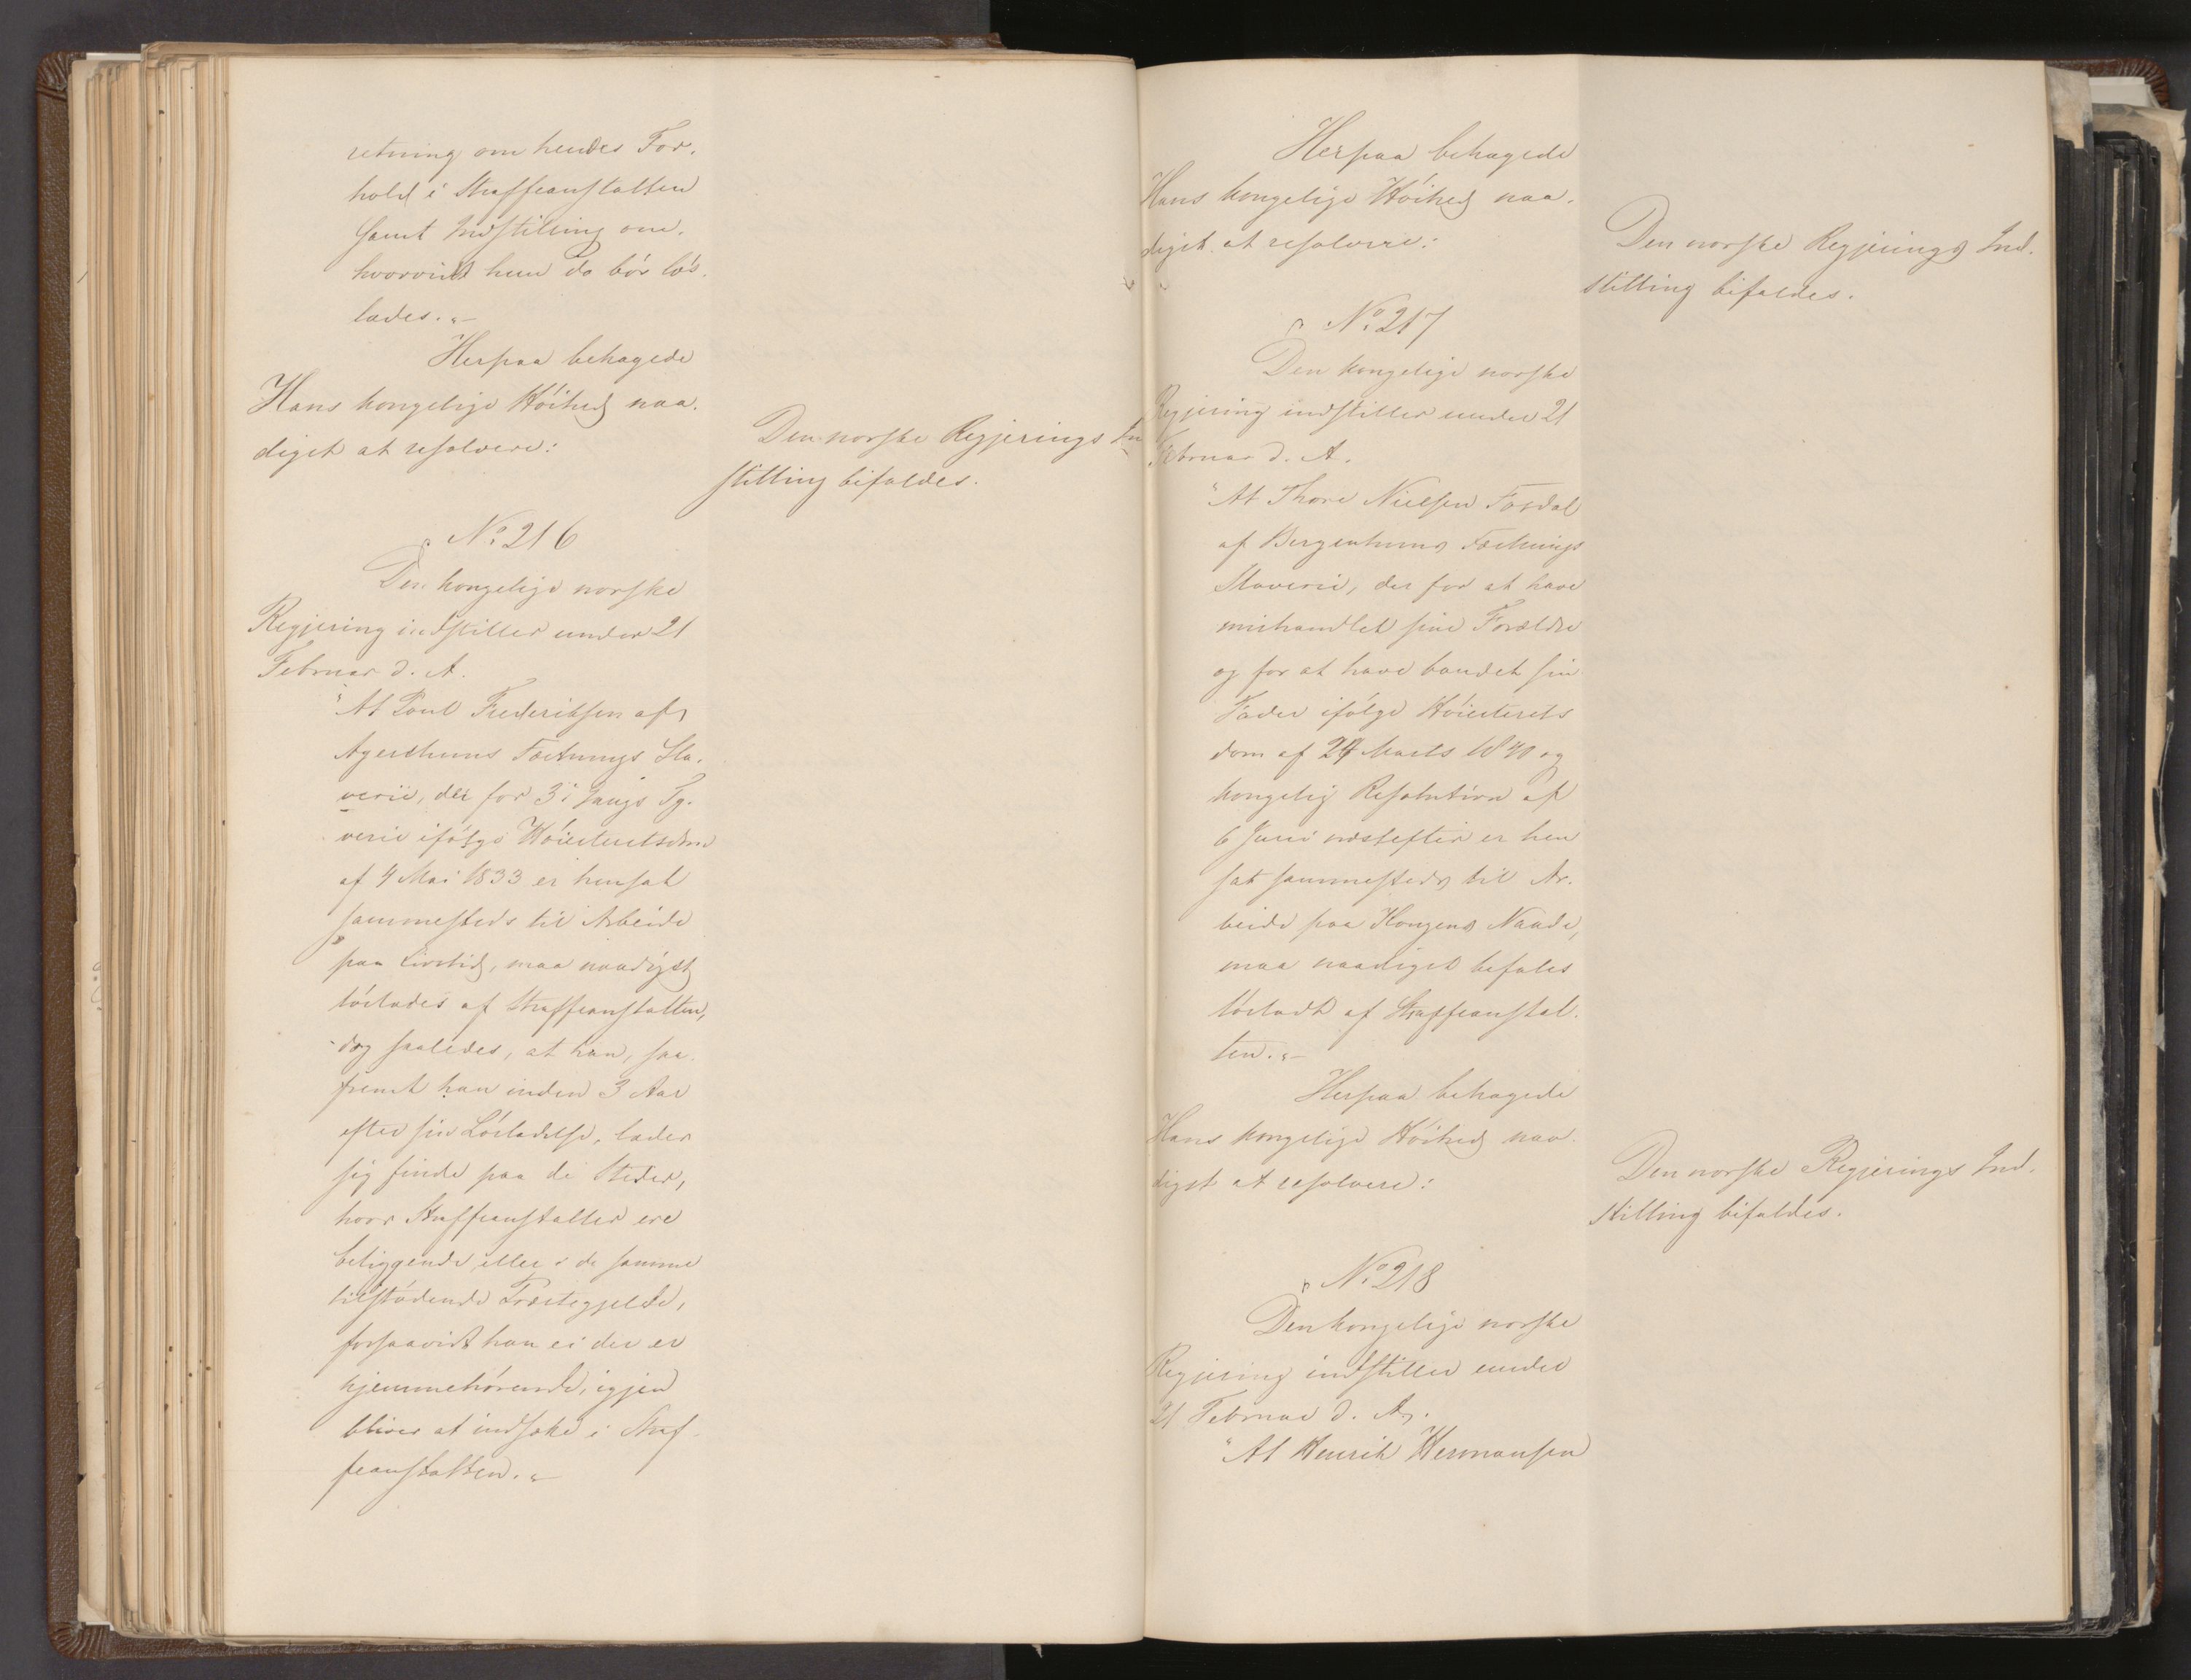 retning om hendes For-
hold i Straffeanstalten
samt Indstilling om,
hvorvidt hun da bør løs-
lades."-
Herpaa behagede
Hans kongelige Høihed naa-
digst at resolvere:
Den norske Regjerings In
stilling bifaldes.
No. 216
Den kongelige norske
Regjering indstiller under 21
Februar d. A.
"At Poul Frederiksen af
Agershuus Fæstnings Sla-
verie, der for 3die Gangs Ty-
verie ifølge Høiesteretsdom
af 4 Mai 1833 er hensat
sammesteds til Arbeide
paa Livstid, maa naadigst
løslades af Straffeanstalten,
dog saaledes, at han, saa-
fremt han inden 3 Aar
efter sin Løsladelse, lader
sig finde paa de Steder,
hvor Straffeanstalter ere
beliggende eller i de samme
tilstødende Præstegjelde,
forsaavidt han ei der er
hjemmehørende, igjen
bliver at indsætte i Straf-
feanstalten."-
Herpaa behagede
Hans kongelige Høihed naa-
digst at resolvere:
Den norske Regjerings Ind-
stilling bifaldes.
No. 217
Den kongelige norske
Regjering indstiller under 21
Februar d. A.
"At Thore Nielsen Fosdal
af Bergenhuus Fæstnings
Slaverie, der for at have
mishandlet sine Forældre
og for at have bandet sin
Fader ifølge Høiesterets
dom af 24 Marts 1840 og
kongelig Resolution af
6 Juni næstefter er hen
sat sammesteds til Ar-
beide paa Kongens Naade,
maa naadigst befales
løsladt af Straffeanstal-
ten."-
Herpaa behagede
Hans kongelige Høihed naa-
digst at resolvere:
Den norske Regjerings Ind-
stilling bifaldes.
No. 218
Den kongelige norske
Regjering indstiller under
21 Februar d. A.
"At Henrik Hermansen